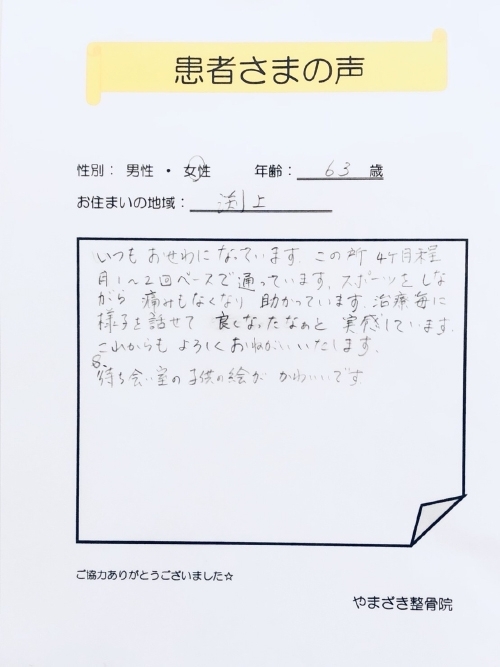 患者さまの声
性別： 男性 ・ 女性 年齢： 63 歳
お住まいの地域： 渕上
いつも おせわに なっています. この所 4ケ月程
月1〜2回ペースで 通っています. スポーツをしな
がら 痛みもなくなり 助かっています. 治療毎に
様子を 話せて 良くなったなぁと 実感しています.
これからも よろしく おねがいいたします.
待ち合い室の 子供の絵が かわいいです
ご協力ありがとうございました☆
やまざき整骨院